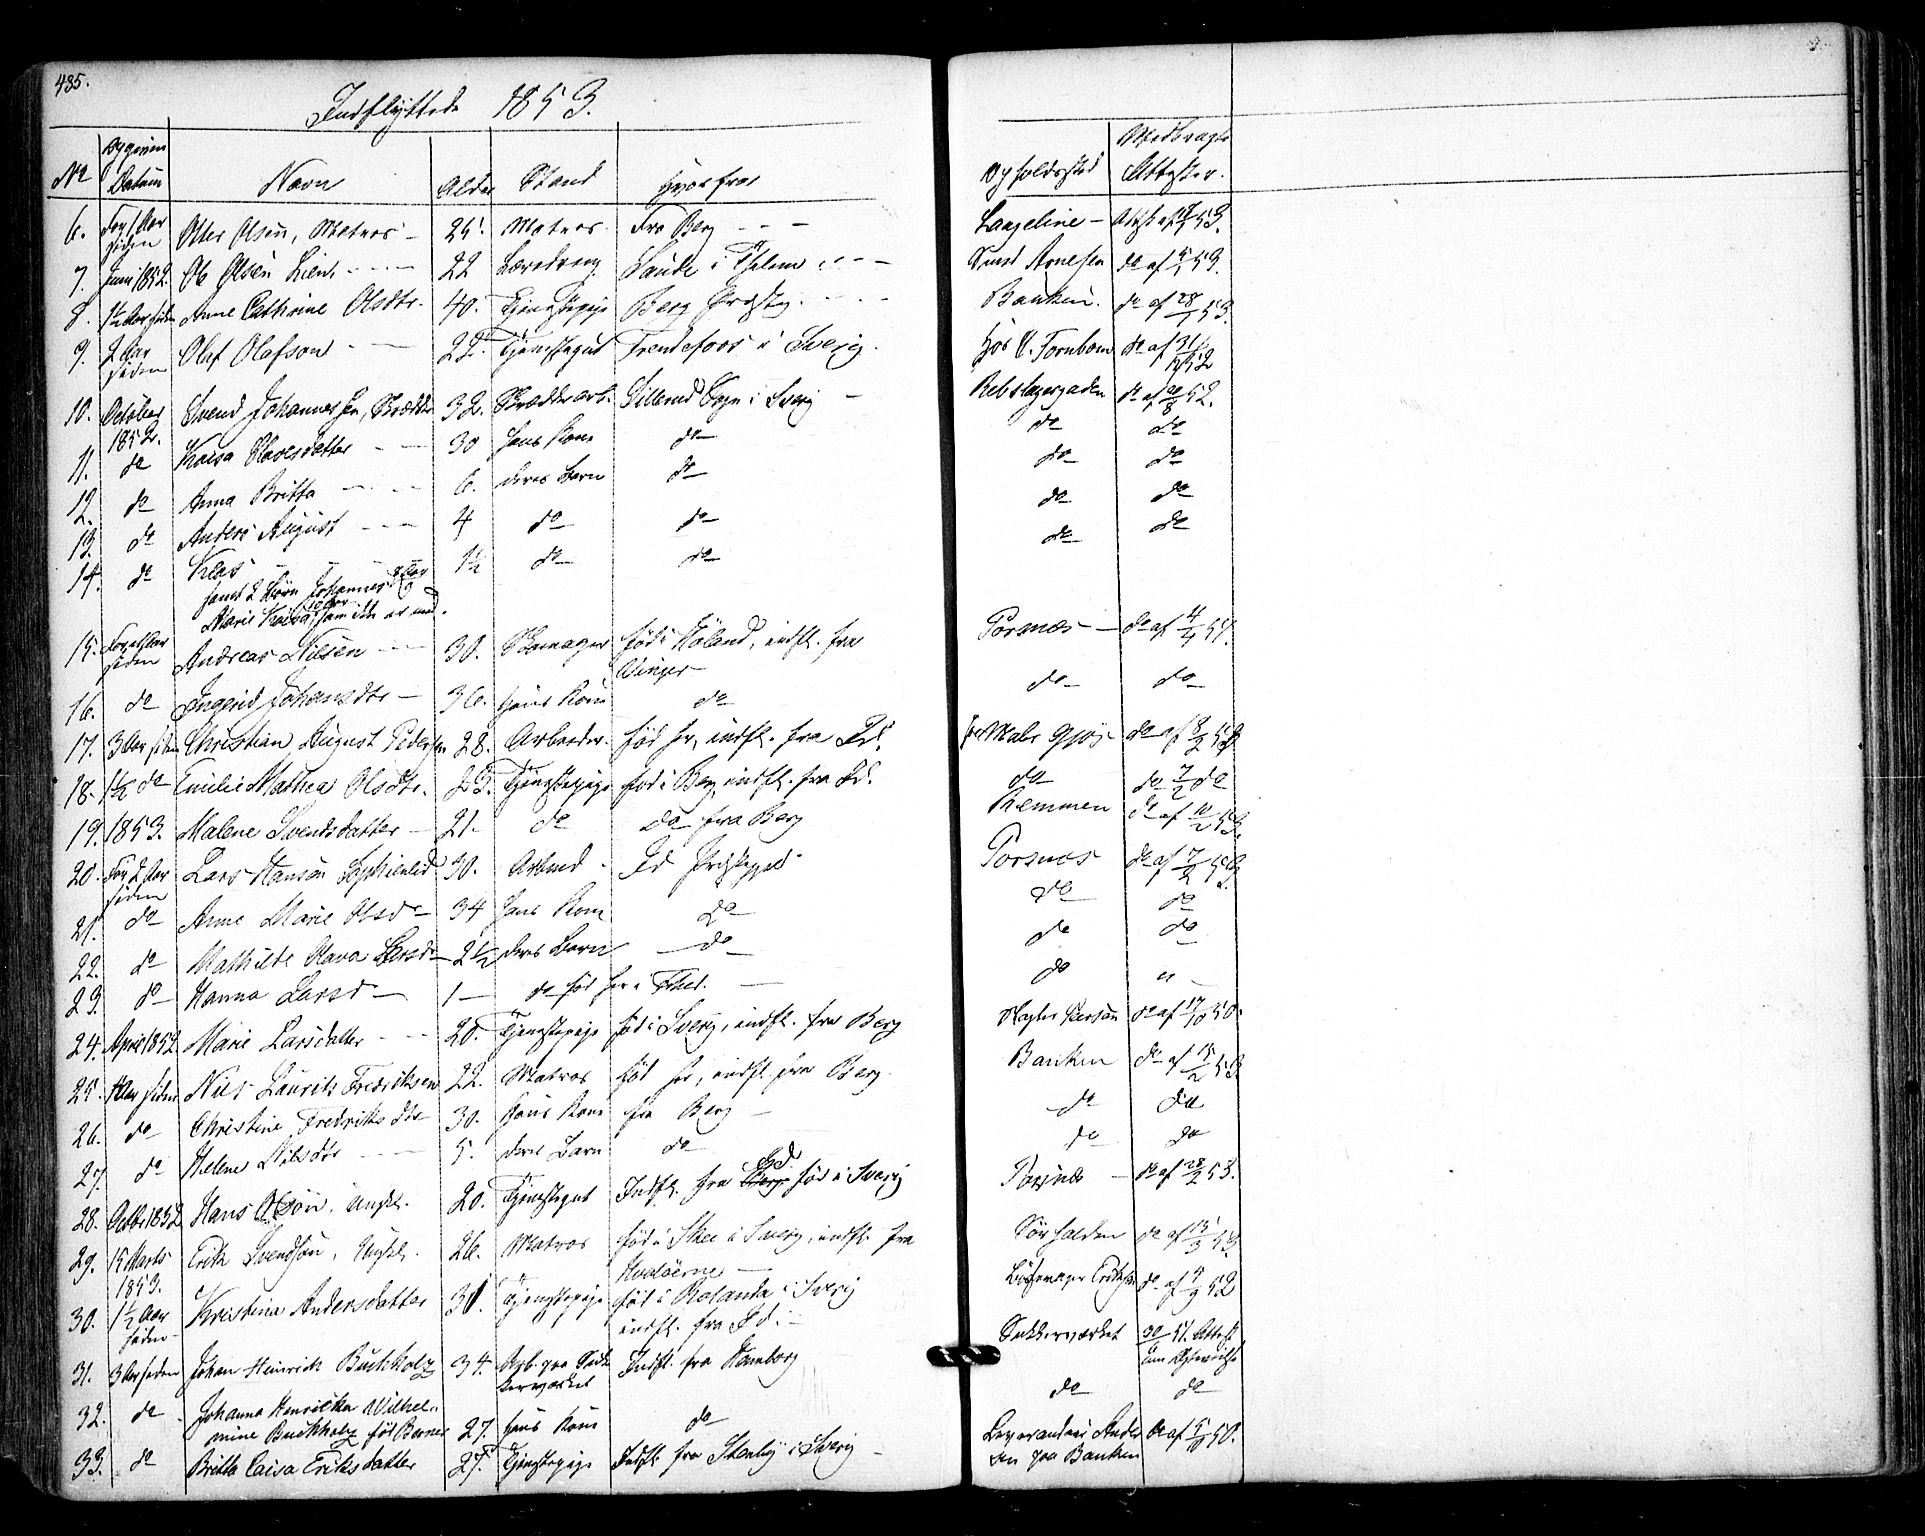 435.
Indflyttede 1853.
No Datum Navn Alder Stand Hvorfra Opholdssted Medbragte Attester.
6. For 1 Aar siden Otter Olsen, Matros 25. Matros Fra Berg Langeline Attest af 53.
7. Juni 1852. Ole Olsen Lien 22 Læredreng Saude i Thelem Arnesen do af 53.
8. 1½ Aar siden Anne Cathrine Olsdtr. 40. Tjenestepige Berg Præstg. Banken. do af 28/1 53.
9. 2 Aar siden Olaf Olafson 22. Tjenestegut i Sverig. hos V. Tornbom do af 31/12 52
10. October 1852. Svend Johannessen, Skrædder 32. Skrædderarb. Sillerud Sogn i Sverig Rebslagergaden do af 20/8 52.
11. do Kaisa Olavesdatter 30 hans Kone do do do
12. do Anna Britta 6. deres Barn do do do
13. do Anders August 4 do do do do
14. do Klas 1½ do do do do
samt 2 Børn Johannes 8 Aar og
Marie Kaisa 10 Aar som ikke er med.
15. For et Aar siden Andreas Nilsen 30. Skomager fød i Høland, indfl. fra Vinger Porsnæs do af 4/4 51.
16. do Ingerid Johansdtr 36. hans Kone do do do
17. 3 Aar siden Christian August Pedersen 28. Arbeider. fød her, indfl. fra Id. do af 8/2 53
18. 1½ do Emilie Mathea Olsdtr. 23. Tjenestepige fød i Berg indfl. fra Id. do do 7/2 do
19. 1853. Malene Svendsdatter 21. do do fra Berg Remmen do af 10/2 53.
20. For 2 Aar siden Lars Hansen Sophienlid 30. Arbmd Id Præstegjeld Porsnæs do af 7/2 53.
21. do Anne Marie Olsdr 34 hans Kone do do do
22. do Mathilde Olava Larsdr 2½ deres Barn do do do
23. do Hanna Larsd 1 do fød her i Fhald. do "
24. April 1852 Marie Larsdatter 20. Tjenestepige fød i Sverig, indfl. fra Berg do af 17/10 50.
25. 1 Aar siden Nils Laurits Fredriksen 22. Matros fød her, indfl. fra Berg. Banken do af 15/2 53
26. do Christine Fredriksdtr 30. hans Kone fra Berg do do
27. do Helene Nilsdtr 5. deres Barn do do do
28. Octbr 1852 Hans Olsøn, Ungkl. 20. Tjenestegut Indfl. fra Id. fød i Sverig Porsnæs do af 28/2 53.
29. 15 Marts 1853. Erik Svendsøn, Ungkl. 26. Matros fød i Skee i Sverig, indfl. fra Hvaløerne Sørhalden do af 15/3 53.
30. 1½ Aar siden Kristina Andersdatter 30. Tjenestepige fød i Rolanda i Sverig indfl. fra Id. Eriksen do af 4/9 52
31. 3 Aar siden Johan Heinrich Buchholz 34. Arb. paa Sukkerværket Indfl. fra Hamborg Sukkerværket 30/ 51. Attest
32. do Johanna Henrietta Wilhelmine Buchholz fød Berner 27. hans Kone do do do
33. do Britta Caisa Eriksdatter 27. Tjenestepige Indfl. fra Stenby i Sverig Andersen paa Banken do af 50.